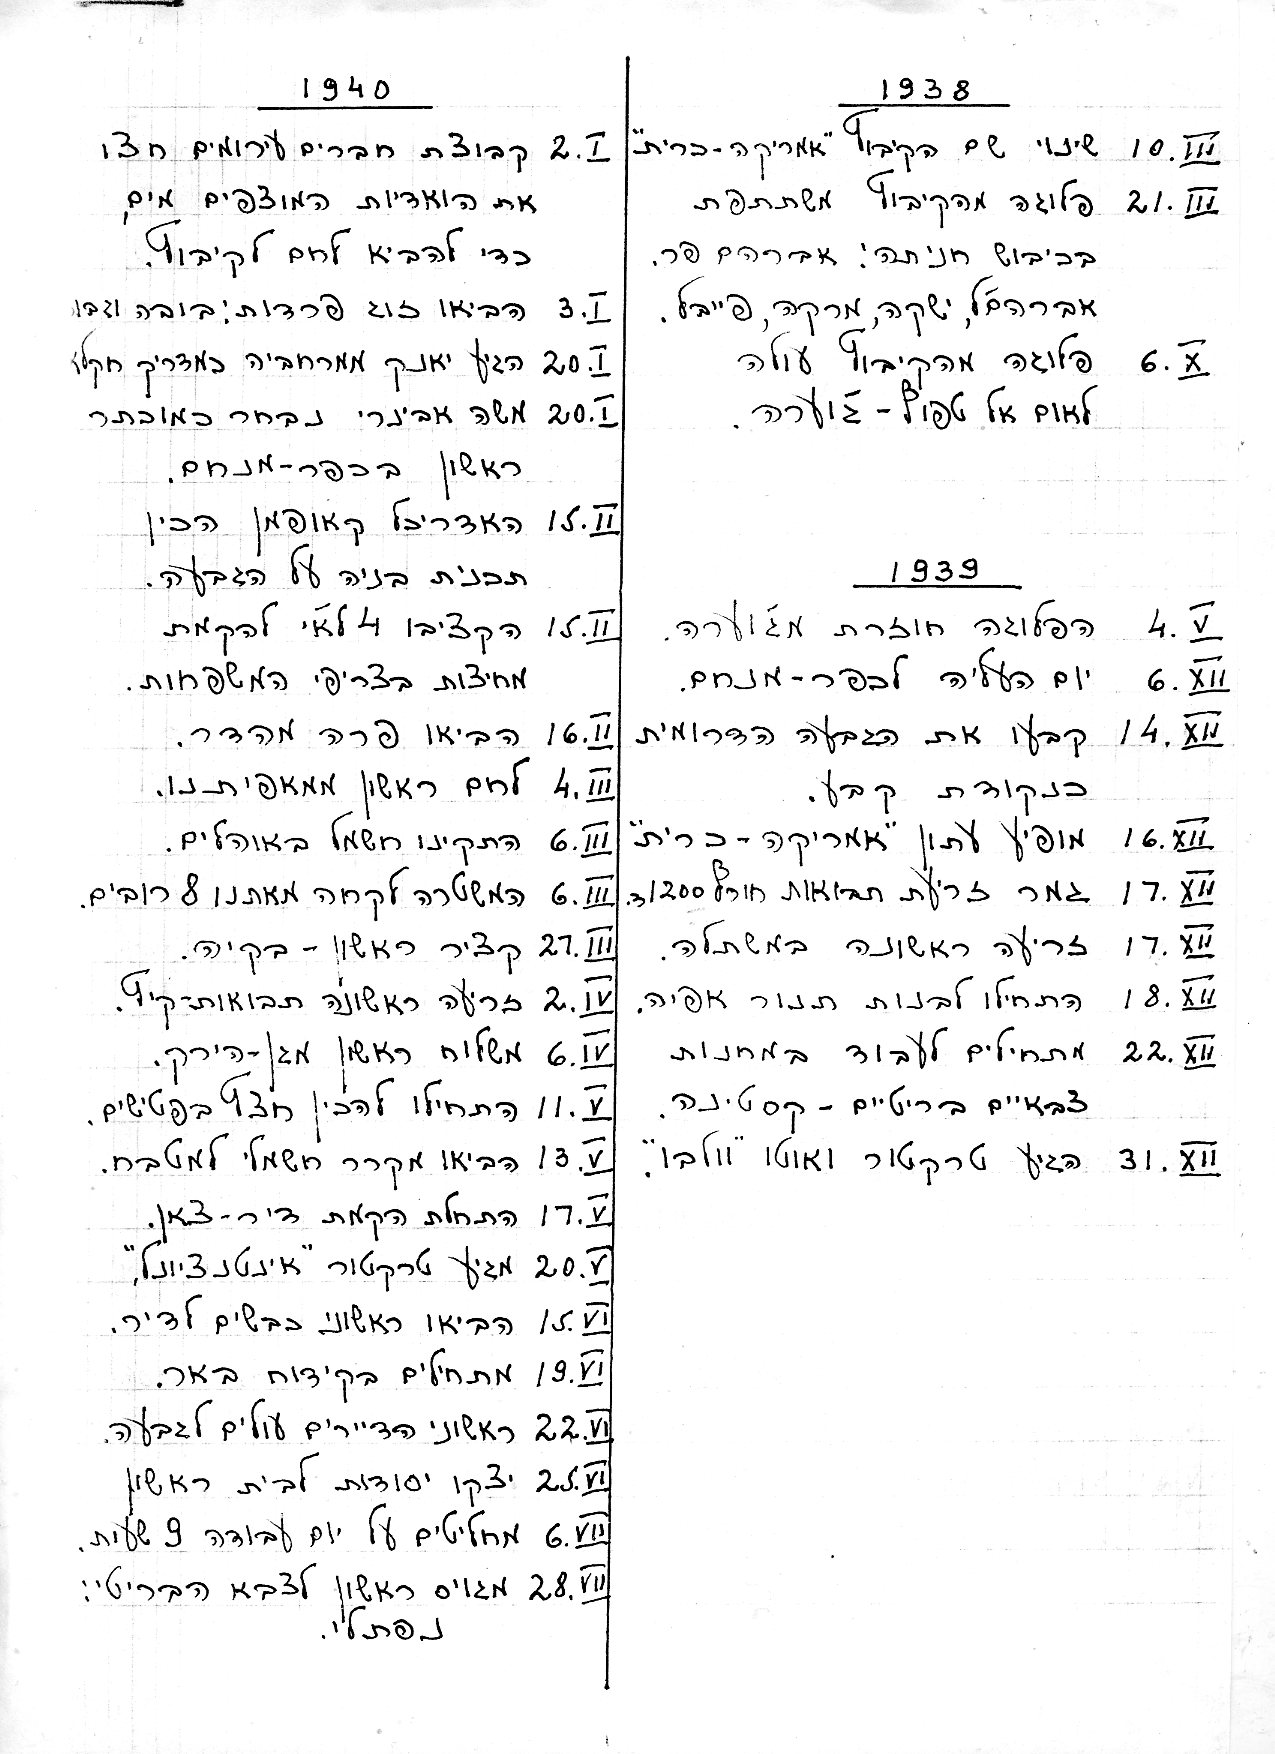 1938
10.III שינוי שם הקיבוץ "אמריקה-כרית"
21.III פלוגה מהקיבוץ משתתפת
בכיבוש חניתה: אברהם פר.
אברהם'ל, ישקה, מרקה, פייבל.
6.X פלוגה מהקיבוץ עולה
לאום אל טפוף - ג'וערה.
1939
4.V הפלוגה חוזרת מג'וערה.
6.XII יום העליה לכפר-מנחם.
14.XII קבעו את הגבעה הדרומית
כנקודת קבע.
16.XII מופיע עתון "אמריקה-כרית"
17.XII גמר זריעת תבואות חורף 1200 ד.
17.XII זריעה ראשונה במשתלה.
18.XII התחילו לבנות תנור אפיה.
22.XII מתחילים לעבוד במחנות
צבאיים בריטיים - קסטינה.
31.XII הגיע טרקטור ואוטו "וולבו".
1940
2.I קבוצת חברים עירומים חצו
את הואדיות המוצפים מים,
כדי להביא לחם לקיבוץ.
3.I הביאו זוג פרדות: בובה
20.I הגיע יאנק ממרחביה כמדריך
20.I משה אבינרי נבחר כמוכתר
ראשון בכפר-מנחם.
15.II האדריכל קאופמן הכין
תכנית בניה על הגבעה.
15.II הקציבו 4 לא"י להקמת
מחיצות בצריפי המשפחות.
16.II הביאו פרה מהדר.
4.III לחם ראשון ממאפיתנו.
6.III התקינו חשמל באוהלים.
6.III המשטרה לקחה מאתנו 8 רובים.
27.III קציר ראשון - בקיה.
2.IV זריעה ראשונה תבואות-קיץ.
6.IV משלוח ראשון מגן-הירק.
11.V התחילו להכין חצץ בפטישים.
13.V הביאו מקרר חשמלי למטבח.
17.V התחלת הקמת דיר-צאן.
20.V מגיע טרקטור "אינטנציונל",
15.VI הביאו ראשוני כבשים לדיר.
19.VI מתחילים בקידוח באר.
22.VI ראשוני הדיירים עולים לגבעה.
25.VI יצקו יסודות לבית ראשון
6.VII מחליטים על יום עבודה 9 שעות.
28.VII מגויס ראשון לצבא הבריטי:
נפתלי.